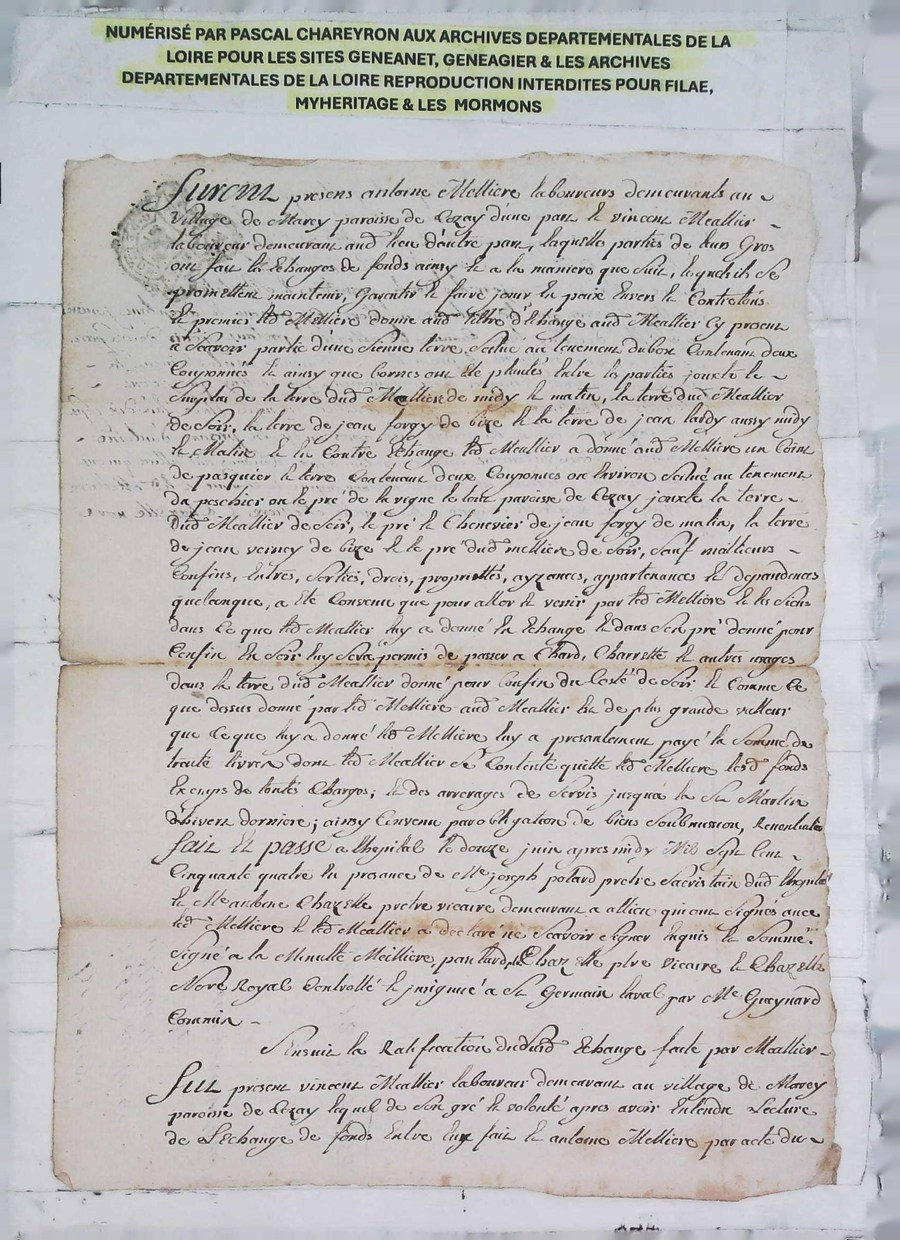 NUMÉRISÉ PAR PASCAL CHAREYRON AUX ARCHIVES DEPARTEMENTALES DE LA
LOIRE POUR LES SITES GENEANET, GENEAGIER & LES ARCHIVES
DEPARTEMENTALES DE LA LOIRE REPRODUCTION INTERDITES POUR FILAE,
MYHERITAGE & LES MORMONS
Furent presens antoine Melliere laboureurs demeurants au
village de Marcy paroisse de Cezay d'une part et vincent Meallier
laboureur demeurant aud lieu d'autre part, laquelle parties de leurs Gros
ont fait les Echanges de fonds ainsy et a la maniere que suit, lequels ils se
promettent maintenir, Garantir et faire jouir en paix Envers et Contre tous
le premier led Melliere donne aud tiltre d'Echange aud Meallier Cy present
a scavoir partie d'une sienne terre, scitué au tenement du box Contenant deux
Couponnés et ainsy que bornes ont Eté plantés Entre les parties jouxte le
surplus de la terre dud Melliere de midy et matin, la terre dud Meallier
de soir, la terre de jean forgy de bize et la terre de jean tardy aussy midy
et Matin et en Contre Echange led Meallier a donné aud Melliere un Coint
de pasquier et terre Contenant deux Couponnés ou Environ scitué au tenement
du peschier ou le pré de la vigne le tout paroisse de Cezay jouxte la terre
dud Meallier de soir, le pré et Chenevier de jean forgy de matin, la terre
de jean verney de bize et le pré dud melliere de soir, sauf meilleurs
Confins, Entrés, sorties, drois, propriettés, ayzances, appartenances et dependences
quelconque, a Eté Convenu que pour aller et venir par led Melliere et les siens
dans Ce que led Meallier luy a donné En Echange et dans son pré donné pour
Confin En soir luy sera permis de passer a Chard, Charrette et autres usages
dans la terre dud Meallier donné pour Confin du Costé de soir et Comme Ce
que dessus donné par led Melliere aud Meallier Est de plus grande valleur
que Ce que luy a donné led Melliere luy a presantement payé la somme de
trente livres dont led Meallier se Contente quitte led Melliere lesd fonds
Exemps de toutes Charges; et des arrerages de servis jusqué la St Martin
d'hivert derniere; ainsy Convenu par obligation de biens soubmission, Renontiation
fait Et passé a l'hopital le douze juin apres midy Mil Sept Cent
Cinquante quatre en presance de Me joseph potard pretre sacristain dud l'hopital
et Me antoine Chazette pretre vicaire demeurant a allieu qui ont signés avec
led Melliere et led Meallier a declaré ne scavoir signer Enquis et sommé
signé a la Minutte Meilliere, potard, Chazette ptre vicaire et Chazelle
Nore Royal Controllé et insignué a St Germain laval par Me Gueynard
Commis
Sensuit la Ratification dud Echange faite par Meallier
Fut present vincent Meallier laboureur demeurant au village de Marcy
paroisse de Cezay lequel de son gré et volonté apres avoir Entendu Lecture
de L'Echange de fonds Entre Eux fait et antoine Melliere par acte du